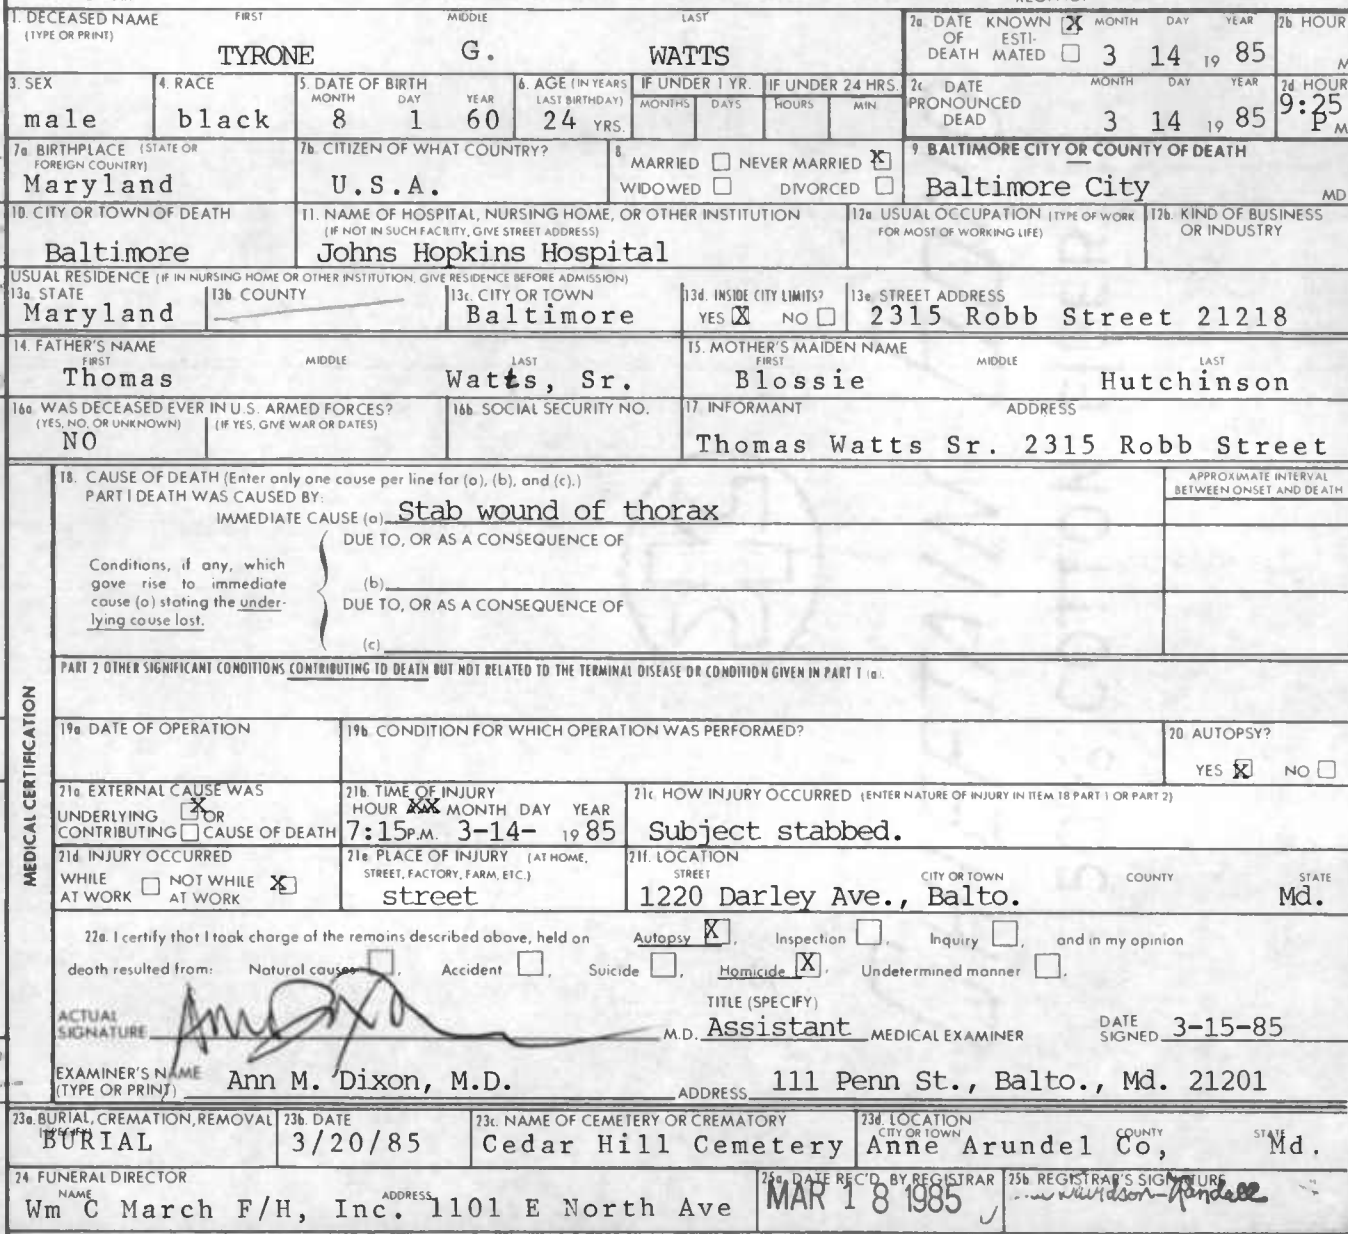 1. DECEASED NAME FIRST MIDDLE LAST
(TYPE OR PRINT)
TYRONE G. WATTS
2a. DATE KNOWN X MONTH DAY YEAR
OF ESTI-
DEATH MATED 3 14 19 85
2b HOUR
M
3. SEX
male
4. RACE
black
5. DATE OF BIRTH
MONTH DAY YEAR
8 1 60
6. AGE (IN YEARS
LAST BIRTHDAY)
24 YRS.
IF UNDER 1 YR.
MONTHS DAYS
IF UNDER 24 HRS.
HOURS MIN
2c DATE MONTH DAY YEAR
PRONOUNCED
DEAD 3 14 19 85
2d HOUR
9:25
P M
7a BIRTHPLACE (STATE OR
FOREIGN COUNTRY)
Maryland
7b. CITIZEN OF WHAT COUNTRY?
U.S.A.
8
MARRIED NEVER MARRIED X
WIDOWED DIVORCED
9 BALTIMORE CITY OR COUNTY OF DEATH
Baltimore City MD
10. CITY OR TOWN OF DEATH
Baltimore
11. NAME OF HOSPITAL, NURSING HOME, OR OTHER INSTITUTION
(IF NOT IN SUCH FACILITY, GIVE STREET ADDRESS)
Johns Hopkins Hospital
12a USUAL OCCUPATION (TYPE OF WORK
FOR MOST OF WORKING LIFE)
12b. KIND OF BUSINESS
OR INDUSTRY
USUAL RESIDENCE (IF IN NURSING HOME OR OTHER INSTITUTION, GIVE RESIDENCE BEFORE ADMISSION)
13a. STATE
Maryland
13b. COUNTY
13c. CITY OR TOWN
Baltimore
13d. INSIDE CITY LIMITS?
YES X NO
13e STREET ADDRESS
2315 Robb Street 21218
14. FATHER'S NAME
FIRST MIDDLE LAST
Thomas Watts, Sr.
15. MOTHER'S MAIDEN NAME
FIRST MIDDLE LAST
Blossie Hutchinson
16a WAS DECEASED EVER IN U.S. ARMED FORCES?
(YES, NO, OR UNKNOWN) (IF YES, GIVE WAR OR DATES)
NO
16b. SOCIAL SECURITY NO.
17 INFORMANT ADDRESS
Thomas Watts Sr. 2315 Robb Street
MEDICAL CERTIFICATION
18. CAUSE OF DEATH (Enter only one cause per line for (a), (b), and (c).)
PART I DEATH WAS CAUSED BY:
IMMEDIATE CAUSE (a) Stab wound of thorax
APPROXIMATE INTERVAL
BETWEEN ONSET AND DEATH
DUE TO, OR AS A CONSEQUENCE OF
Conditions, if any, which
gave rise to immediate
cause (a) stating the under-
lying cause last.
(b)
DUE TO, OR AS A CONSEQUENCE OF
(c)
PART 2 OTHER SIGNIFICANT CONDITIONS CONTRIBUTING TO DEATH BUT NOT RELATED TO THE TERMINAL DISEASE OR CONDITION GIVEN IN PART 1 (a).
19a DATE OF OPERATION
19b. CONDITION FOR WHICH OPERATION WAS PERFORMED?
20 AUTOPSY?
YES X NO
21a EXTERNAL CAUSE WAS
UNDERLYING X OR
CONTRIBUTING CAUSE OF DEATH
21b. TIME OF INJURY
HOUR XX MONTH DAY YEAR
7:15 P.M. 3-14- 19 85
21c HOW INJURY OCCURRED (ENTER NATURE OF INJURY IN ITEM 18 PART 1 OR PART 2)
Subject stabbed.
21d INJURY OCCURRED
WHILE NOT WHILE X
AT WORK AT WORK
21e PLACE OF INJURY (AT HOME,
STREET, FACTORY, FARM, ETC.)
street
21f. LOCATION
STREET CITY OR TOWN COUNTY STATE
1220 Darley Ave., Balto. Md.
22a. I certify that I took charge of the remains described above, held an Autopsy X, Inspection, Inquiry, and in my opinion
death resulted from: Natural causes, Accident, Suicide, Homicide X, Undetermined manner.
ACTUAL
SIGNATURE M.D.
TITLE (SPECIFY)
Assistant MEDICAL EXAMINER
DATE
SIGNED 3-15-85
EXAMINER'S NAME
(TYPE OR PRINT) Ann M. Dixon, M.D.
ADDRESS 111 Penn St., Balto., Md. 21201
23a. BURIAL, CREMATION, REMOVAL
BURIAL
23b. DATE
3/20/85
23c. NAME OF CEMETERY OR CREMATORY
Cedar Hill Cemetery
23d. LOCATION
CITY OR TOWN COUNTY STATE
Anne Arundel Co, Md.
24 FUNERAL DIRECTOR
NAME ADDRESS
Wm C March F/H, Inc. 1101 E North Ave
25a. DATE REC'D. BY REGISTRAR
MAR 18 1985
25b. REGISTRAR'S SIGNATURE
Davidson-Randall